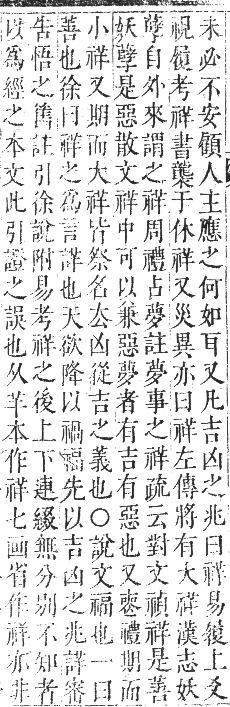 未必不安顧人主應之何如耳又凡吉凶之兆曰祥易履上爻
視履考祥書襲于休祥又災異亦曰祥左傳將有大祥漢志妖
孽自外來謂之祥周禮占夢註夢事之祥疏云對文禎祥是善
妖孽是惡散文祥中可以兼惡夢者有吉有惡也又喪禮期而
小祥又期而大祥皆祭名去凶從吉之義也○說文福也一曰
善也徐曰祥之爲言詳也天欲降以禍福先以吉凶之兆詳審
告悟之舊註引徐說附易考祥之後上下連綴無分別不知者
以爲經之本文此引證之誤也从羊本作祥七画省作祥亦非